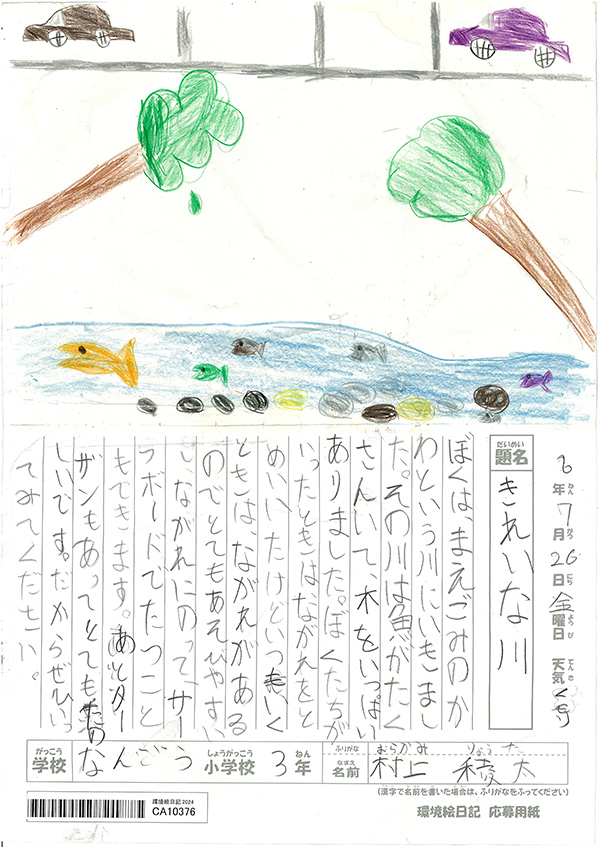 6年7月26日金曜日 天気くもり
ねん がつ にち ようび てんき
だいめい
題名 きれいな川
ぼくは、まえごみのか
わという川にいきまし
た。その川は魚がたく
さんいて、木をいっぱい
ありました。ぼくたちが
いったときはながれをと
めいいたけどいつもいく
ときは、ながれがある
のでとてもあそびやすい
し、ながれにのって、サー
フボードでたつこと
もできます。あとター
ザンもあってとてもたの
しいです。だからぜひいっ
てみてください。
がっこう しょうがっこう ねん
学校 なんごう 小学校 3年
ふりがな むらかみ りょうた
なまえ
名前 村上 稜太
(漢字で名前を書いた場合は、ふりがなをふってください)
環境絵日記 応募用紙
環境絵日記2024
CA10376